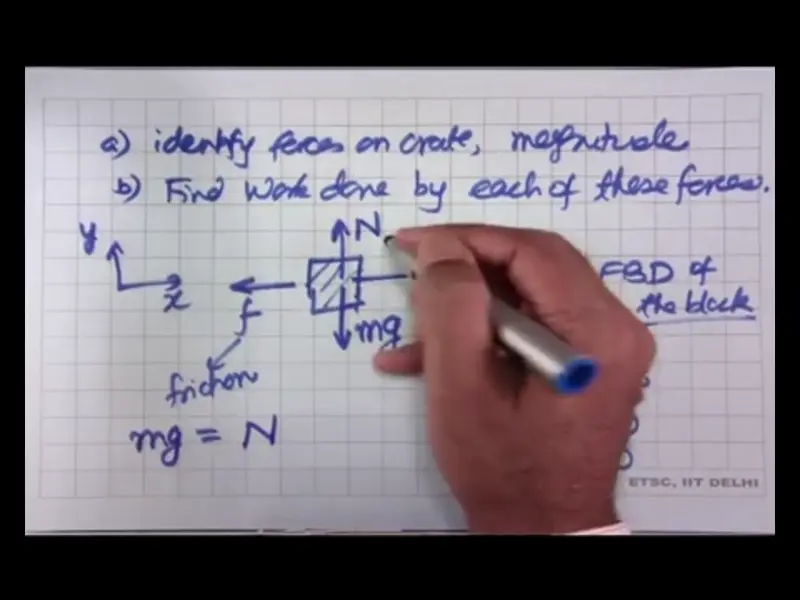 a) identify forces on crate, magnitude
b) Find work done by each of these forces.
y
N
x
f
mg
FBD of
the block
friction
mg = N
ETSC, IIT DELHI